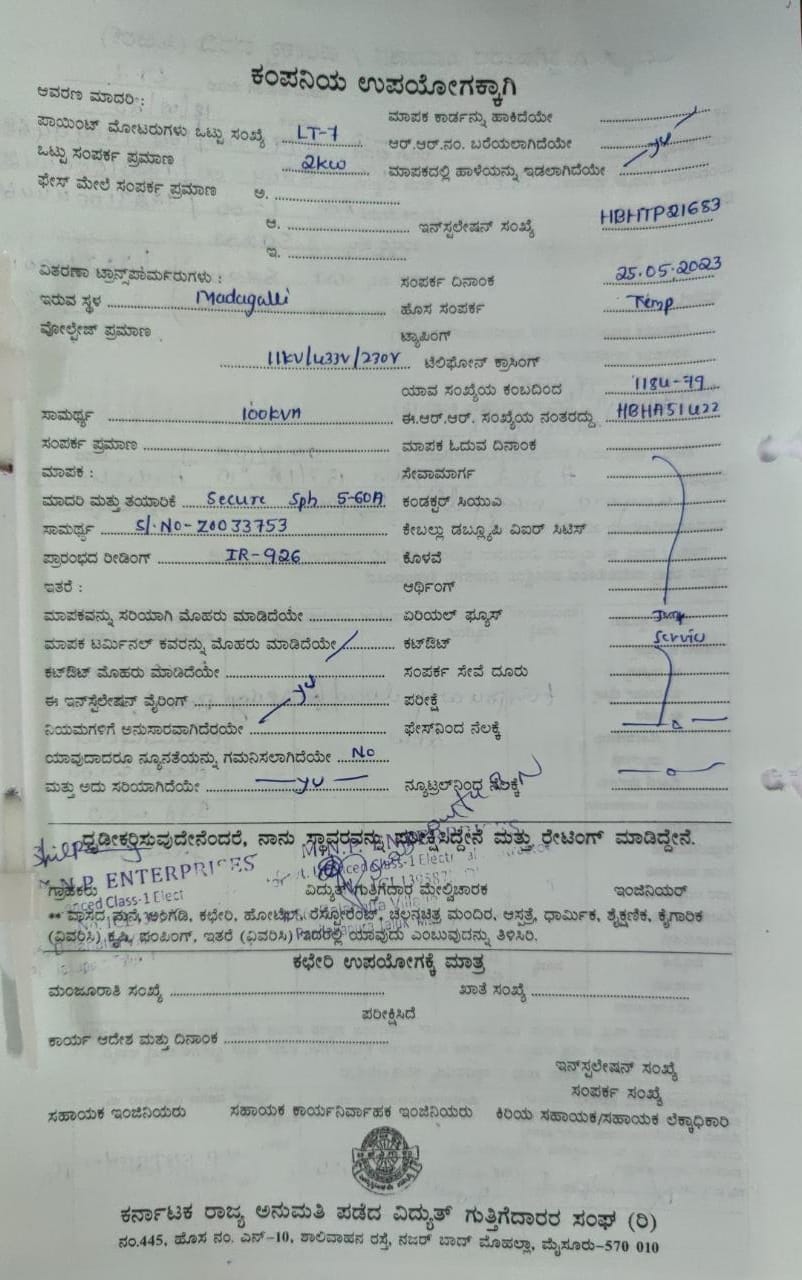 ಕಂಪನಿಯ ಉಪಯೋಗಕ್ಕಾಗಿ
ಆವರಣ ಮಾದರಿ : ಮಾಪಕ ಕಾರ್ಡನ್ನು ಹಾಕಿದೆಯೇ
ಪಾಯಿಂಟ್ ಮೋಟರುಗಳು ಒಟ್ಟು ಸಂಖ್ಯೆ LT-7 ಆರ್.ಆರ್.ನಂ. ಬರೆಯಲಾಗಿದೆಯೇ
ಒಟ್ಟು ಸಂಪರ್ಕ ಪ್ರಮಾಣ 2kw ಮಾಪಕದಲ್ಲಿ ಹಾಳೆಯನ್ನು ಇಡಲಾಗಿದೆಯೇ
ಫೇಸ್ ಮೇಲೆ ಸಂಪರ್ಕ ಪ್ರಮಾಣ ಅ.
ಆ. ಇನ್‌ಸ್ಟಲೇಷನ್ ಸಂಖ್ಯೆ HBHTP21683
ಇ.
ವಿತರಣಾ ಟ್ರಾನ್ಸ್‌ಫಾರ್ಮರುಗಳು : ಸಂಪರ್ಕ ದಿನಾಂಕ 25.05.2023
ಇರುವ ಸ್ಥಳ Madagalli ಹೊಸ ಸಂಪರ್ಕ Temp
ವೋಲ್ಟೇಜ್ ಪ್ರಮಾಣ ಟ್ಯಾಪಿಂಗ್
11kV/433V/230V ಟೆಲಿಫೋನ್ ಕ್ರಾಸಿಂಗ್
ಯಾವ ಸಂಖ್ಯೆಯ ಕಂಬದಿಂದ 1184-79
ಸಾಮರ್ಥ್ಯ 100kVA ಈ.ಆರ್.ಆರ್. ಸಂಖ್ಯೆಯ ನಂತರದ್ದು HBHA51422
ಸಂಪರ್ಕ ಪ್ರಮಾಣ ಮಾಪಕ ಓದುವ ದಿನಾಂಕ
ಮಾಪಕ : ಸೇವಾಮಾರ್ಗ
ಮಾದರಿ ಮತ್ತು ತಯಾರಿಕೆ Secure Sph 5-60A ಕಂಡಕ್ಟರ್ ಸಿಯುವಿ
ಸಾಮರ್ಥ್ಯ S/.NO-Z0033753 ಕೇಬಲ್ಲು ಡಬ್ಲ್ಯೂಪಿ ವಿಐರ್ ಸಿಟಿಸ್
ಪ್ರಾರಂಭದ ರೀಡಿಂಗ್ IR-926 ಕೊಳವೆ
ಇತರೆ : ಆರ್ಥಿಂಗ್
ಮಾಪಕವನ್ನು ಸರಿಯಾಗಿ ಮೊಹರು ಮಾಡಿದೆಯೇ ಏರಿಯಲ್ ಫ್ಯೂಸ್
ಮಾಪಕ ಟರ್ಮಿನಲ್ ಕವರನ್ನು ಮೊಹರು ಮಾಡಿದೆಯೇ ಕಟ್‌ಔಟ್ Service
ಕಟ್‌ಔಟ್ ಮೊಹರು ಮಾಡಿದೆಯೇ ಸಂಪರ್ಕ ಸೇವೆ ದೂರು
ಈ ಇನ್‌ಸ್ಟಲೇಷನ್ ವೈರಿಂಗ್ ಪರೀಕ್ಷೆ
ನಿಯಮಗಳಿಗೆ ಅನುಸಾರವಾಗಿದೆರಯೇ ಫೇಸ್‌ವಿಂದ ನೆಲಕ್ಕೆ
ಯಾವುದಾದರೂ ನ್ಯೂನತೆಯನ್ನು ಗಮನಿಸಲಾಗಿದೆಯೇ No
ಮತ್ತು ಅದು ಸರಿಯಾಗಿದೆಯೇ ನ್ಯೂಟ್ರಲ್‌ನಿಂಧ ನೆಲಕ್ಕೆ
ಧೃಡೀಕರಿಸುವುದೇನೆಂದರೆ, ನಾನು ಸ್ಥಾವರವನ್ನು ಪರೀಕ್ಷಿಸಿದ್ದೇನೆ ಮತ್ತು ರೇಟಿಂಗ್ ಮಾಡಿದ್ದೇನೆ.
N.P. ENTERPRISES
ಗ್ರಾಹಕರು ವಿದ್ಯುತ್ ಗುತ್ತಿಗೆದಾರ ಮೇಲ್ವಿಚಾರಕ ಇಂಜಿನಿಯರ್
** ವಾಸದ ಮನೆ, ಅಂಗಡಿ, ಕಛೇರಿ, ಹೋಟೆಲ್, ರೆಸ್ಟೋರೆಂಟ್, ಚಲನಚಿತ್ರ ಮಂದಿರ, ಆಸ್ಪತ್ರೆ, ಧಾರ್ಮಿಕ, ಶೈಕ್ಷಣಿಕ, ಕೈಗಾರಿಕ
(ವಿವರಿಸಿ) ಕೃಷಿ ಪಂಪಿಂಗ್, ಇತರೆ (ವಿವರಿಸಿ) ಇದರಲ್ಲಿ ಯಾವುದು ಎಂಬುವುದನ್ನು ತಿಳಿಸಿರಿ.
ಕಛೇರಿ ಉಪಯೋಗಕ್ಕೆ ಮಾತ್ರ
ಮಂಜೂರಾತಿ ಸಂಖ್ಯೆ ಖಾತೆ ಸಂಖ್ಯೆ
ಪರೀಕ್ಷಿಸಿದೆ
ಕಾರ್ಯ ಆದೇಶ ಮತ್ತು ದಿನಾಂಕ
ಇನ್‌ಸ್ಟಲೇಷನ್ ಸಂಖ್ಯೆ
ಸಂಪರ್ಕ ಸಂಖ್ಯೆ
ಸಹಾಯಕ ಇಂಜಿನಿಯರು ಸಹಾಯಕ ಕಾರ್ಯನಿರ್ವಾಹಕ ಇಂಜಿನಿಯರು ಕಿರಿಯ ಸಹಾಯಕ/ಸಹಾಯಕ ಲೆಕ್ಕಾಧಿಕಾರಿ
ಕರ್ನಾಟಕ ರಾಜ್ಯ ಅನುಮತಿ ಪಡೆದ ವಿದ್ಯುತ್ ಗುತ್ತಿಗೆದಾರರ ಸಂಘ (ರಿ)
ನಂ.445, ಹೊಸ ನಂ. ಎನ್-10, ಶಾಲಿವಾಹನ ರಸ್ತೆ, ನಜರ್ ಬಾದ್ ಮೊಹಲ್ಲಾ, ಮೈಸೂರು-570 010